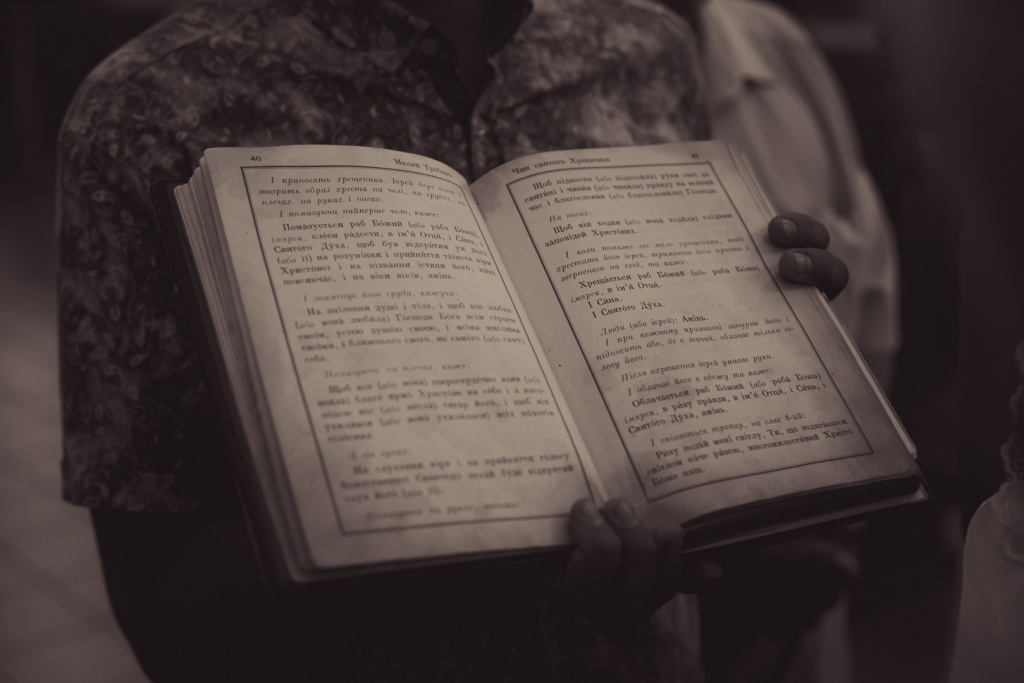 40 Малий Требник
І приносять хрещеника. Ієрей бере єлею
творить образ хреста на чолі, на грудях, на
плечах, на руках і ногах.
І помазуючи найперше чоло, каже:
Помазується раб Божий (або раба Божа),
імярек, єлеєм радости, в ім'я Отця, і Сина, і
Святого Духа, щоб був відкритим ум його
(або її) на розуміння і прийняття таїнств віри
Христової і на пізнання істини його, нині
повсякчас, і на віки віків, амінь.
І знаменує його груди, кажучи:
На зцілення душі і тіла, і щоб він любив
(або вона любила) Господа Бога всім серцем
своїм, усією душею своєю, і всіма мислями
своїми, і ближнього свого, як самого (або саму)
себе.
Помазуючи на плечах, каже:
Щоб він (або вона)
На слухання віри і на прийняття голосу
Чин святого Хрещення 41
Щоб підносив (або підносила) руки свої до
святині і чинив (або чинила) правду на всякий
час і благословив (або благословила) Господа.
На ногах:
Щоб він ходив (або вона ходила) слідами
заповідей Христових.
І коли помаже все тіло хрещеника, тоді
хрестить його ієрей, тримаючи його просто і
зверненого на схід, та каже:
Хрещається раб Божий (або раба Божа)
імярек, в ім'я Отця.
І Сина.
І Святого Духа.
Люди (або ієрей): Амінь.
І при кожному призванні занурює його і
підносить або, де є звичай, обливає тільки го-
лову його.
Після охрещення ієрей умиває руки.
І облачає його в одежу та каже:
Облачається раб Божий (або раба Божа)
імярек, в ризу правди, в ім'я Отця, і Сина, і
Святого Духа, амінь.
І співається тропар, на глас 8-ий:
Ризу подай мені світлу, Ти, що водягаєшся
світлом наче ризою, многомилостивий Христе
Боже наш.